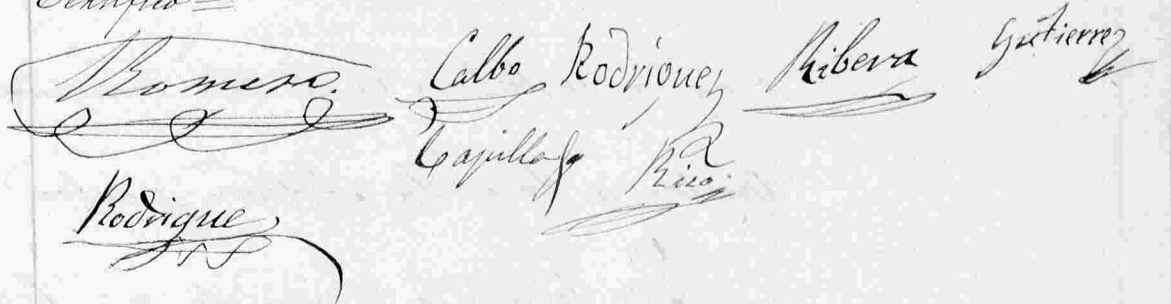 Certifico =
Romero. Calbo Rodriguez Ribera Gutierrez
Capilla Rizo
Rodrigue